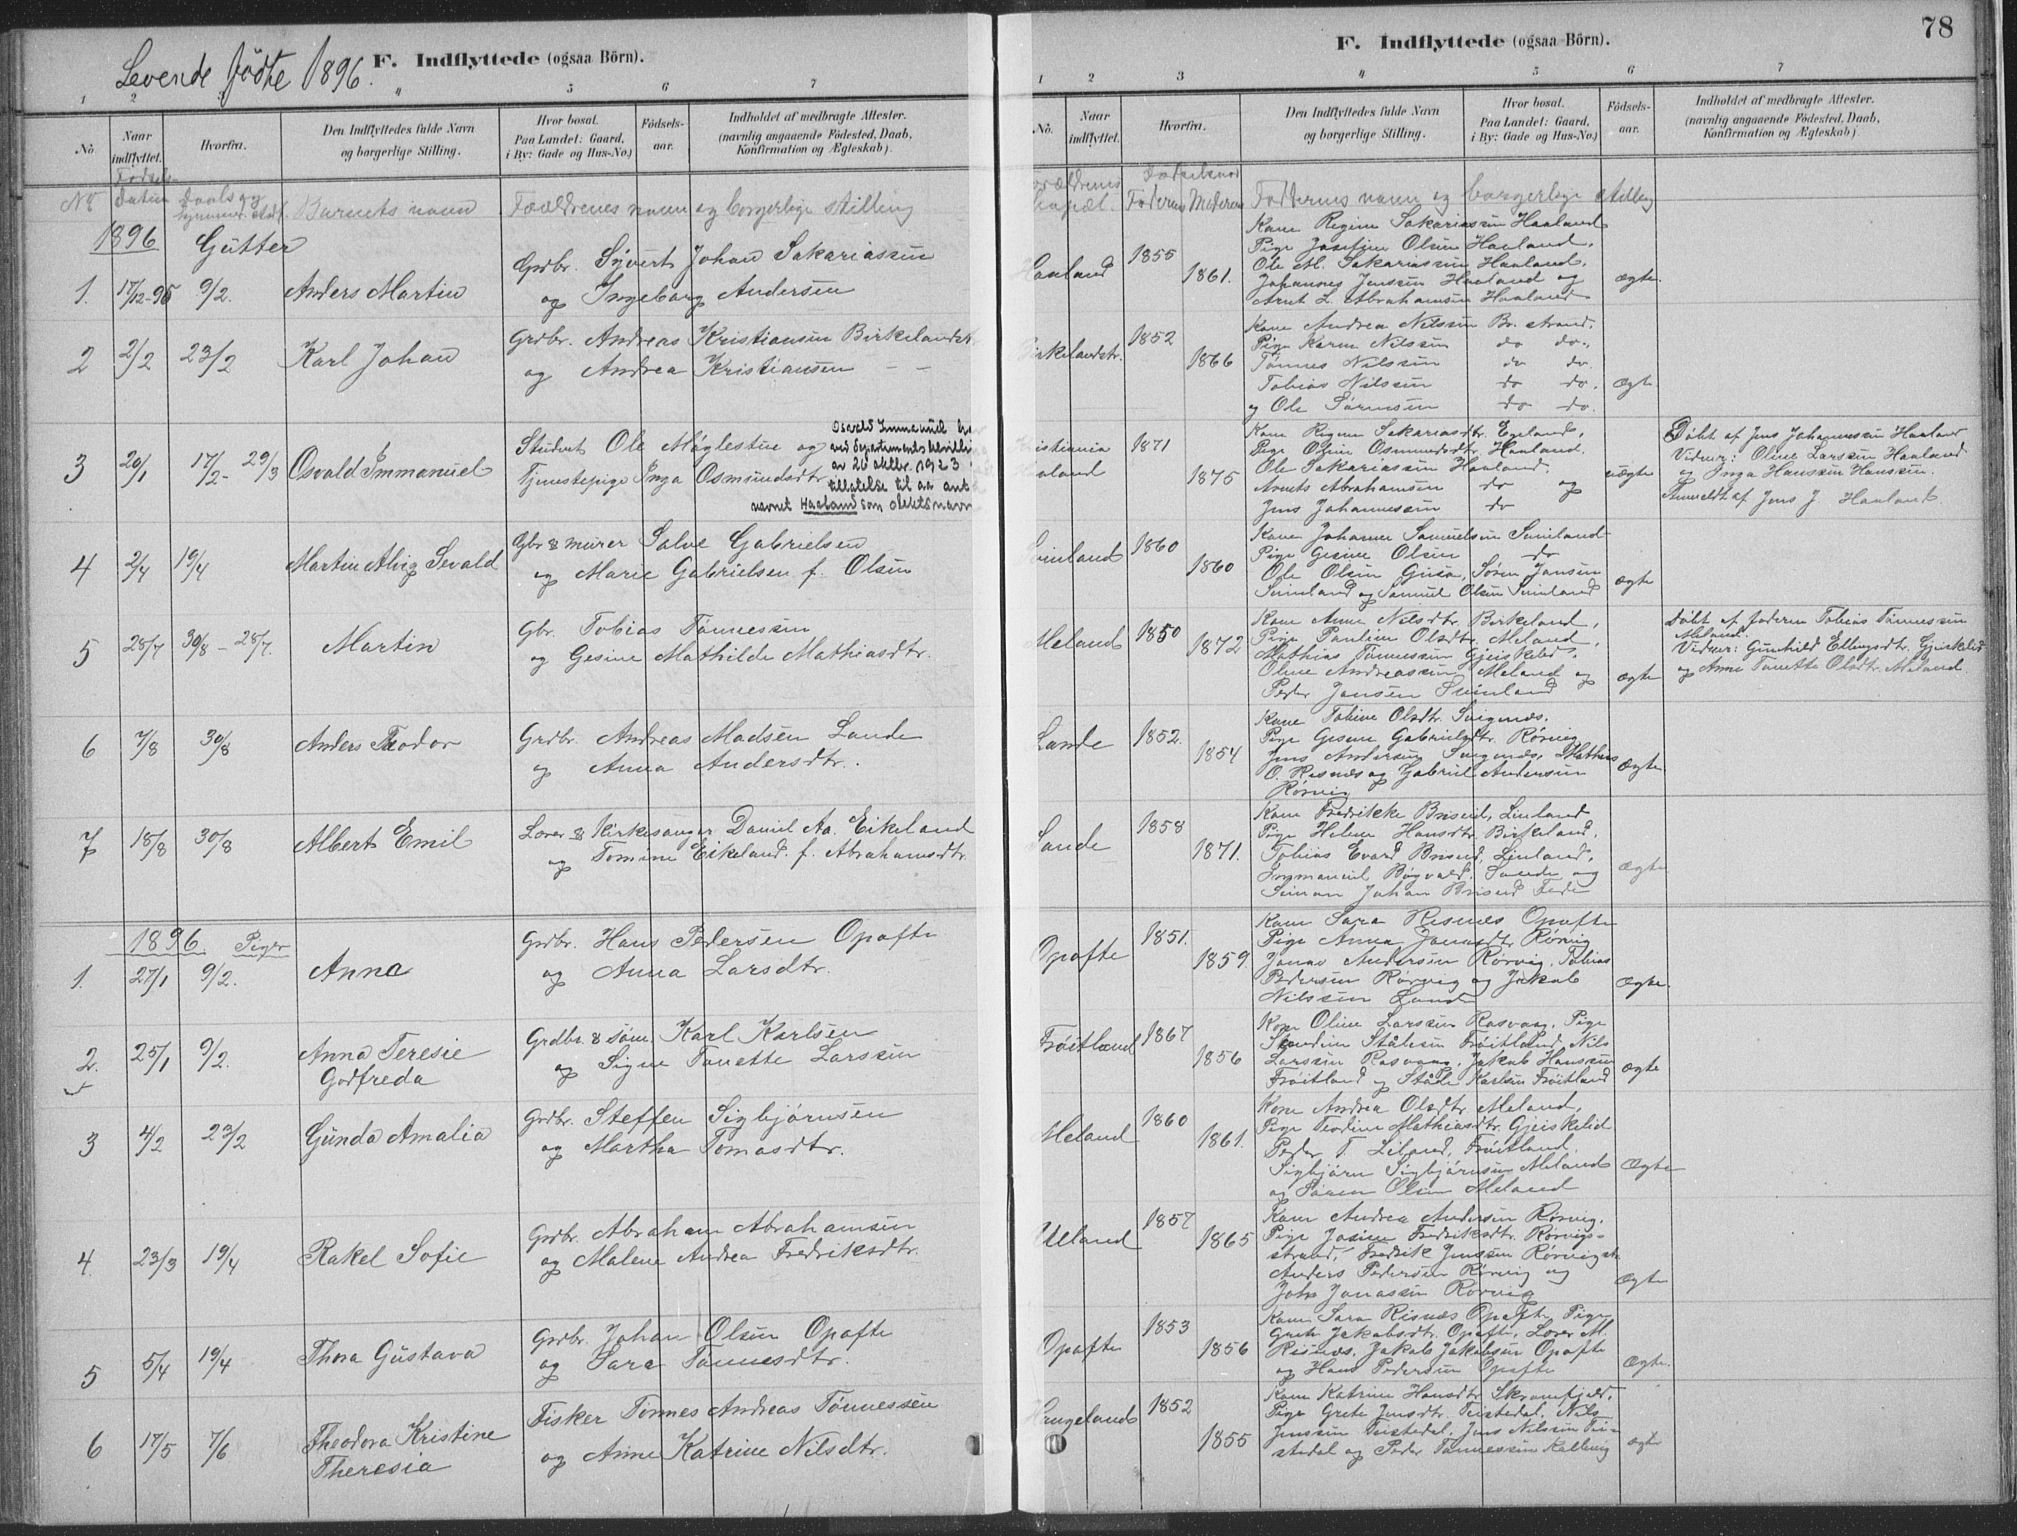 78
Levende fødte 1896.
F. Indflyttede (ogsaa Börn).
1 2 3 4 5 6 7
No Naar indflyttet. Hvorfra. Den Indflyttedes fulde Navn og borgerlige Stilling. Hvor bosat. Paa Landet: Gaard, i By: Gade og Hus-No.) Födsels-aar. Indholdet af medbragte Attester. (navnlig angaaende Födested, Daab, Konfirmation og Ægteskab).
No Fødsels-datum Daabs og Barnets navn Forældrenes navn og borgerlige stilling
1896 Gutter
1. 17/12-95 9/2. Anders Martin
Grdbr. Syvert Johan Sakariassen
og Ingeborg Andersen
2 2/2 23/2 Karl Johan
Grdbr. Andreas Kristiansen Birkelandstr.
og Andrea Kristiansen — —
3 20/1 17/2 - 29/3 Osvald Immanuel
Student Ole Møglestue og
Tjenestepige Inga Osmundsdtr.
Osvald Immanuel har
ved Departements bevilling
av 26 oktbr. 1923
tillatelse til aa anta
navnet Haaland som slektsnavn
4 2/4 19/4 Martin Alvig Sevald
Gbr & murer Salve Gabrielsen
og Marie Gabrielsen f. Olsen
5 28/7 30/8 - 28/7. Martin
Gbr. Tobias Tønnessen
og Gesine Mathilde Mathiasdtr.
6 7/8 30/8 Anders Teodor
Grdbr. Andreas Madsen Lande
og Anna Andersdtr.
7 18/8 30/8 Albert Emil
Lærer & Kirkesanger Daniel Aa. Eikeland
og Tomine Eikeland f. Abrahamsdtr.
1896. Piger
1. 27/1 9/2. Anna
Grdbr. Hans Pedersen Opofte
og Anna Larsdtr.
2. 25/1 9/2. Anna Teresie
Godfreda
Grdbr. & søm. Karl Karlsen
og Signe Tonette Larssen
3 4/2 23/2 Gunda Amalia
Grdbr. Steffen Sigbjørnsen
og Martha Tomasdtr.
4. 23/3 19/4 Rakel Sofie
Grdbr. Abraham Abrahamsen
og Malene Andrea Fredriksdtr.
5 5/4 19/4 Thora Gustava
Grdbr. Johan Olsen Opofte
og Sara Tønnesdtr.
6 17/5 7/6 Theodora Kristine
Theresia
Fisker Tønnes Andreas Tønnessen
og Anne Katrine Nilsdtr.
F. Indflyttede (ogsaa Börn).
1 2 3 4 5 6 7
No. Naar indflyttet. Hvorfra. Den Indflyttedes fulde Navn og borgerlige Stilling. Hvor bosat. Paa Landet: Gaard, i By: Gade og Hus-No.) Födsels-aar. Indholdet af medbragte Attester. (navnlig angaaende Födested, Daab, Konfirmation og Ægteskab).
Faderens Moderens Faddernes navn og borgerlige stilling
Haaland 1855 1861. ægte.
Kone Regine Sakariassen Haaland
Pige Josefine Olsen Haaland.
Ole M. Sakariassen Haaland.
Johannes Jenssen Haaland og
Arnt L. Abrahamsen Haaland
Birkelandstr. 1852 1866 ægte
Kone Andrea Nilssen Br. strand.
Pige Karen Nilssen do do.
Tønnes Nilssen do do
Tobias Nilssen do do.
og Ole Sørensen do do.
Kristiania 1871
Haaland 1875 uægte
Kone Regine Sakariasdtr. Egeland,
Pige Oline Osmundsdtr. Haaland.
Ole Sakariassen Haaland.
Abrahamsen do og
Jens Johannessen do
Døbt af Jens Johannessen Haaland
Vidner: Oline Larssen Haaland
og Inga Hanssen Hanssen.
Anmeldt af Jens J. Haaland.
Sunland 1860 1860 ægte
Kone Johanne Samuelsen Sunland
Pige Gesine Olsen do
Ole Olsen, Søren Jansen
Sunland og Samuel Olsen Sunland
Meland 1850 1872 ægte
Kone Anne Nilsdtr. Birkeland,
Pige Pauline Olsdtr. Meland,
Mathias Tønnessen Gjeiskelid.
Oline Andreassen Meland og
Peder Jansen Sunland
Døbt af faderen Tobias Tønnessen
Meland.
Vidner: Gunhild Ellingsdtr. Gjeiskelid
og Anne Tonette Olsdtr. Meland
Lande 1852. 1854 Ægte
Kone Tobine Olsdtr. Svignæs.
Pige Gesine Gabrielsdtr. Rørvig
Jens Andersen Svignæs, Mathias
O. Risnæs og Gabriel Andersen
Rørvig
Sande 1858 1871. ægte
Kone Fredrikke Briseid, Linland
Pige Helene Hansdtr. Birkeland.
Tobias Evard Briseid, Linland.
Immanuel Bøgvald, Sande og
Simon Johan Briseid Fede
Opofte 1851. 1859. ægte.
Kone Sara Risnes Opofte
Pige Anna Jonasdtr. Rørvig
Jonas Andersen Rørvig. Tobias
Pedersen Rørvig og Jakob
Nilssen Lande
Frøitland 1867 1856 ægte
Kone Oline Larssen Rasvaag, Pige
Ståhlsen Frøitland, Nils
Larssen Rasvaag, Jakob Hanssen
Frøitland og Ståle Karlsen Frøitland
Meland 1860 1861. Ægte
Kone Andrea Olsdtr. Meland.
Pige Teodine Mathiasdtr. Gjeiskelid
Peder T. Liland, Frøitland.
Sigbjørn Sigbjørnsen Meland
og Søren Olsen Meland
Ueland 1857 1865 Ægte
Kone Andrea Andersen Rørvig.
Pige Josine Fredriksdtr. Rørvigs-
strand, Fredrik Jenssen Rørvigstr.
Anders Pedersen Rørvig og
Johs Jonassen Rørvig
Opofte 1853 1856 Ægte.
Kone Sara Risnæs Opofte, Pige
Grete Jakobsdtr. Opofte, Lærer M.
Risnæs, Jakob Jakobsen Opofte
og Hans Pedersen Opofte
Haugeland 1852 1855 ægte
Kone Katrine Hansdtr. Skramfjeld.
Pige Grete Jensdtr. Teistedal, Nils
Jenssen Teistedal, Jens Nilssen Tei-
stedal og Peder Tønnessen